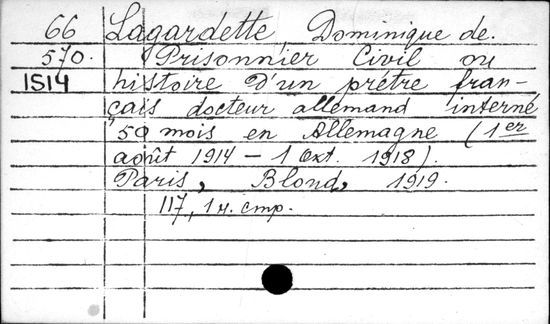 66 Lagardette, Dominique de.
570. Prisonnier Civil ou
1S14 histoire d'un prêtre fran-
çais docteur allemand interné
50 mois en Allemagne (1er
août 1914 - 1 Oxt. 1918).
Paris, Blond, 1919.
117, 1 н. стр.